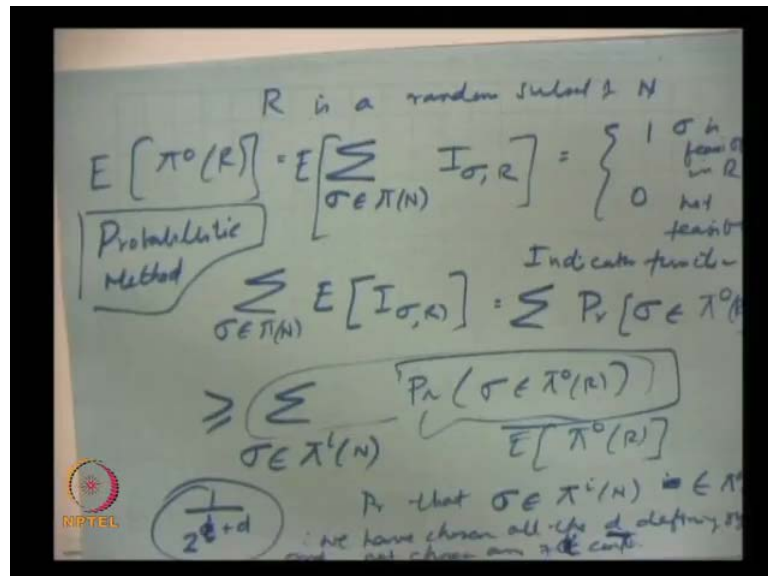 R is a random subset of N
E [π⁰(R)] = E[ Σ I_{σ,R} ] = { 1 σ is
σ ∈ π(N) feasi
in R
0 not
feasib
Probabilistic
Method
Indicator function
Σ E [I_{σ,R}] = Σ Pr [σ ∈ π⁰(R
σ ∈ π(N)
≥ Σ Pr (σ ∈ π⁰(R))
σ ∈ πⁱ(N) E[π⁰(R)]
Pr that σ ∈ πⁱ(N) ∈ π⁰
1
2^{i+d}
we have chosen all the d defining
and not chosen any of
NPTEL